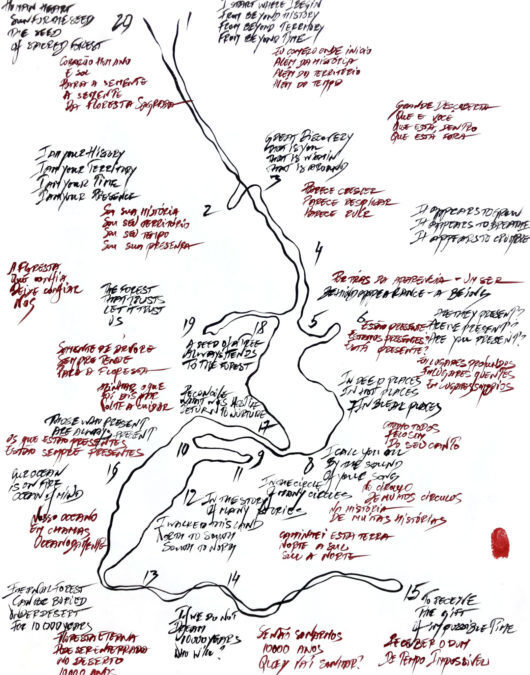 HUMAN HEART
SUN FOR THE SEED
THE SEED
OF SACRED FOREST
20
CORAÇÃO HUMANO
É SOL
PARA A SEMENTE
A SEMENTE
DA FLORESTA SAGRADA
1
I START WHERE I BEGIN
FROM BEYOND HISTORY
FROM BEYOND TERRITORY
FROM BEYOND TIME
EU COMEÇO ONDE INICIO
ALÉM DA HISTÓRIA
ALÉM DO TERRITÓRIO
ALÉM DO TEMPO
GRANDE DESCOBERTA
QUE É VOCÊ
QUE ESTÁ DENTRO
QUE ESTÁ FORA
GREAT DISCOVERY
THAT IS YOU
THAT IS WITHIN
THAT IS AROUND
3
I AM YOUR HISTORY
I AM YOUR TERRITORY
I AM YOUR TIME
I AM YOUR PRESENCE
2
SOU SUA HISTÓRIA
SOU SEU TERRITÓRIO
SOU SEU TEMPO
SOU SUA PRESENÇA
PARECE CRESCER
PARECE RESPIRAR
PARECE RUIR
IT APPEARS TO GROW
IT APPEARS TO BREATHE
IT APPEARS TO CRUMBLE
4
POR TRÁS DA APARÊNCIA - UM SER
BEHIND APPEARANCE - A BEING
A FLORESTA
QUE CONFIA
DEIXE CONFIAR
NÓS
THE FOREST
THAT TRUSTS
LET IT TRUST
US
19
18
5
6
ARE THEY PRESENT?
ARE WE PRESENT?
ARE YOU PRESENT?
ESTÃO PRESENTES?
ESTAMOS PRESENTES?
ESTÁ PRESENTE?
SEMENTE DE ÁRVORE
SEMPRE TENDE
PARA A FLORESTA
A SEED OF A TREE
ALWAYS TENDS
TO THE FOREST
EM LUGARES PROFUNDOS
EM LUGARES QUENTES
EM LUGARES SOMBRIOS
IN DEEP PLACES
IN HOT PLACES
IN BLEAK PLACES
O QUE
VOLTE A CUIDAR
RECONCILE
WHAT WAS HOSTILE
RETURN TO NURTURE
17
THOSE WHO PRESENT
ARE ALWAYS PRESENT
OS QUE ESTÃO PRESENTES
ESTÃO SEMPRE PRESENTES
16
10
9
8
11
CHAMO TODOS
PELO SOM
DO SEU CANTO
I CALL YOU ALL
BY THE SOUND
OF YOUR SONG
OUR OCEAN
IS ON FIRE
OCEAN OF MIND
NOSSO OCEANO
EM CHAMAS
OCEANO DA MENTE
12
IN THE CIRCLE
OF MANY CIRCLES
IN THE STORY
OF MANY STORIES
NO CÍRCULO
DE MUITOS CÍRCULOS
NA HISTÓRIA
DE MUITAS HISTÓRIAS
I WALKED THIS LAND
NORTH TO SOUTH
SOUTH TO NORTH
CAMINHEI ESTA TERRA
NORTE A SUL
SUL A NORTE
13
14
15
ETERNAL FOREST
CAN BE BURIED
UNDER DESERT
FOR 10 000 YEARS
FLORESTA ETERNA
PODE SER ENTERRADA
NO DESERTO
10 000 ANOS
IF WE DO NOT
DREAM
10000 YEARS
WHO WILL?
SE NÃO SONHARMOS
10000 ANOS
QUEM VAI SONHAR?
TO RECEIVE
THE GIFT
OF IMPOSSIBLE TIME
RECEBER O DOM
DE TEMPO IMPOSSÍVEL